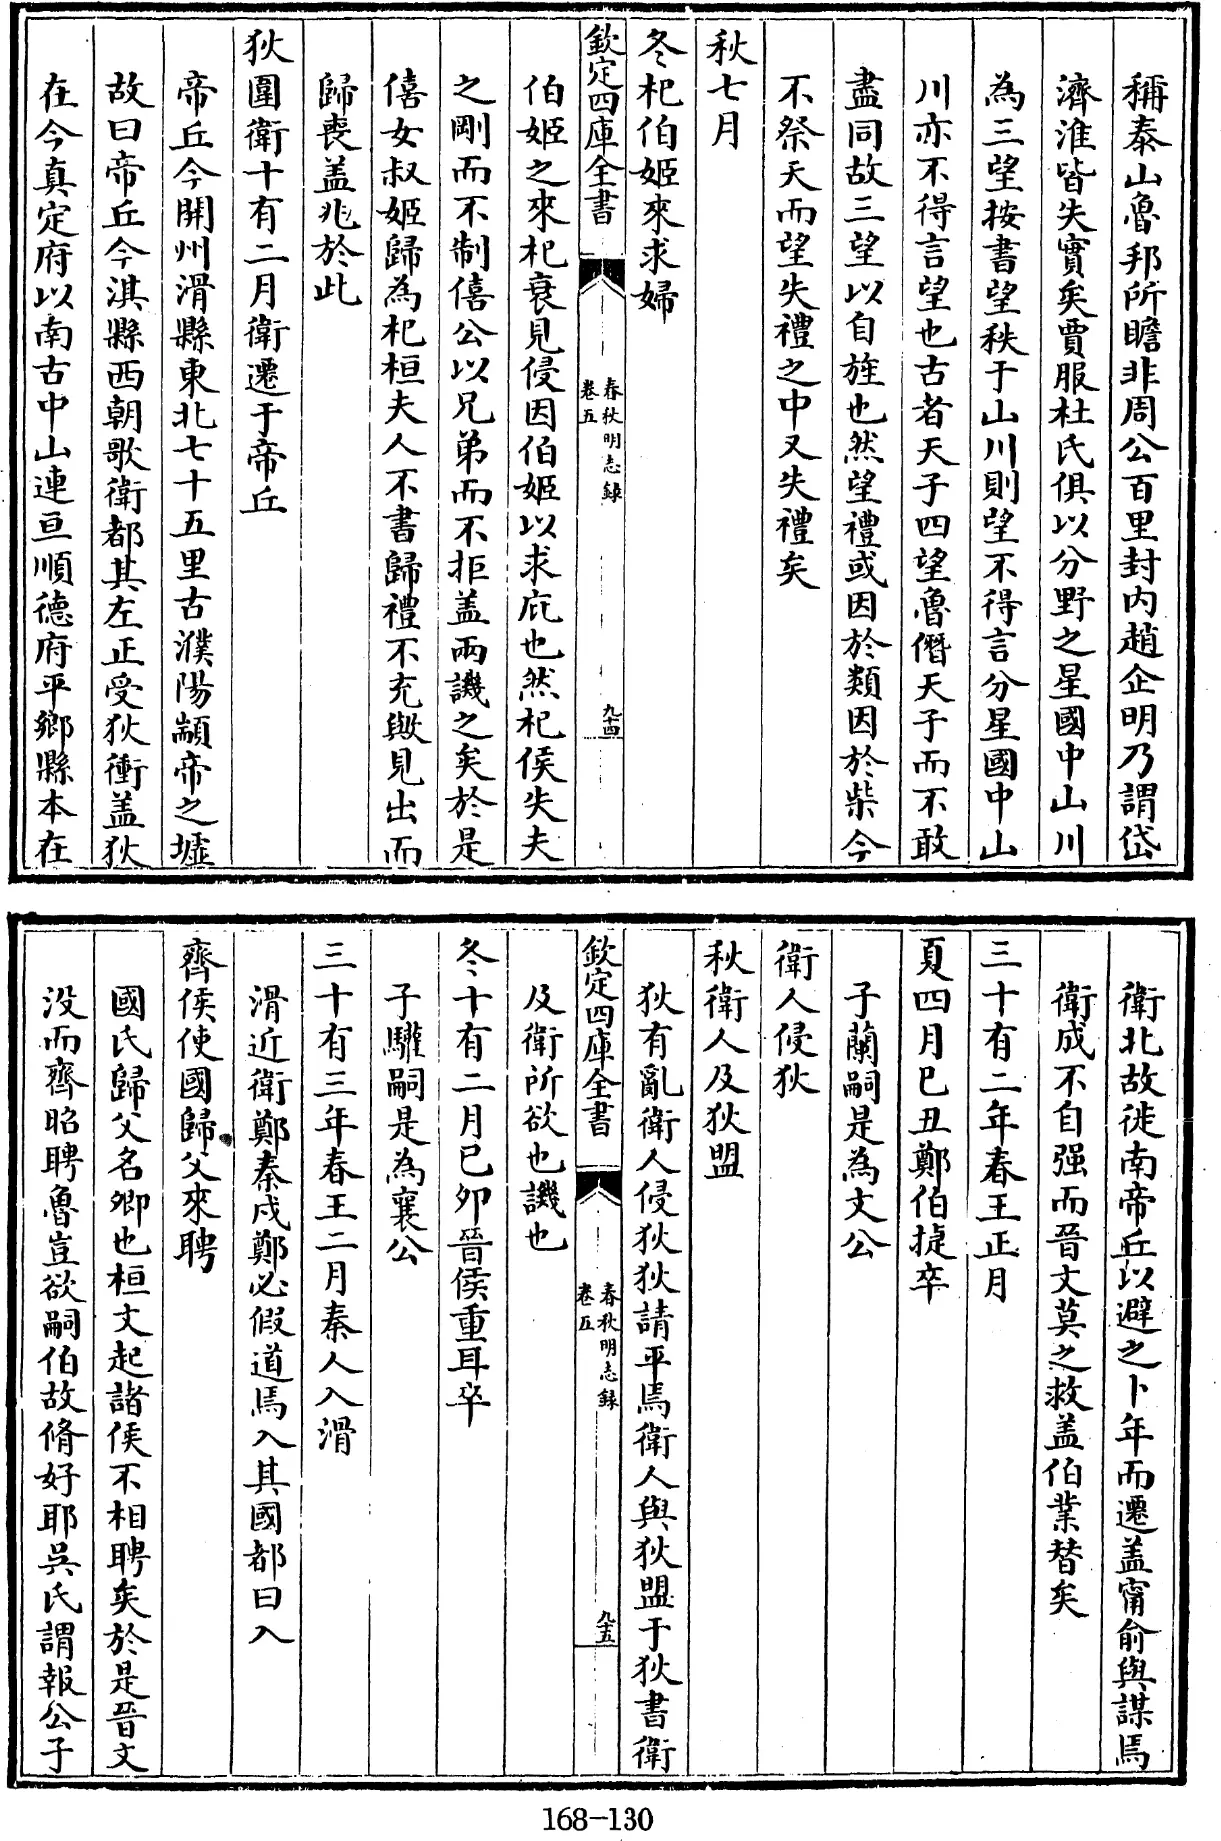 稱泰山魯邦所瞻非周公百里封内趙企明乃謂岱
濟淮皆失實矣賈服杜氏俱以分野之星國中山川
為三望按書望秩于山川則望不得言分星國中山
川亦不得言望也古者天子四望魯僭天子而不敢
盡同故三望以自旌也然望禮或因於類因於柴今
不祭天而望失禮之中又失禮矣
秋七月
冬杞伯姬來求婦
欽定四庫全書
春秋明志録
卷五
九十四
伯姬之來杞衰見侵因伯姬以求庇也然杞侯失夫
之剛而不制僖公以兄弟而不拒盖兩譏之矣於是
僖女叔姬歸為杞桓夫人不書歸禮不充與見出而
歸喪盖兆於此
狄圍衛十有二月衛遷于帝丘
帝丘今開州滑縣東北七十五里古濮陽顓帝之墟
故曰帝丘今淇縣西朝歌衛都其左正受狄衝盖狄
在今真定府以南古中山連亘順德府平鄉縣本在
衛北故徙南帝丘以避之卜年而遷盖甯俞與謀焉
衛成不自强而晉文莫之救盖伯業替矣
三十有二年春王正月
夏四月已丑鄭伯捷卒
子蘭嗣是為文公
衛人侵狄
秋衛人及狄盟
狄有亂衛人侵狄狄請平焉衛人與狄盟于狄書衛
欽定四庫全書
春秋明志録
卷五
九十五
及衛所欲也譏也
冬十有二月已卯晉侯重耳卒
子驩嗣是為襄公
三十有三年春王二月秦人入滑
滑近衛鄭秦戍鄭必假道焉入其國都曰入
齊侯使國歸父來聘
國氏歸父名卿也桓文起諸侯不相聘矣於是晉文
没而齊昭聘魯豈欲嗣伯故脩好耶吳氏謂報公子
168-130